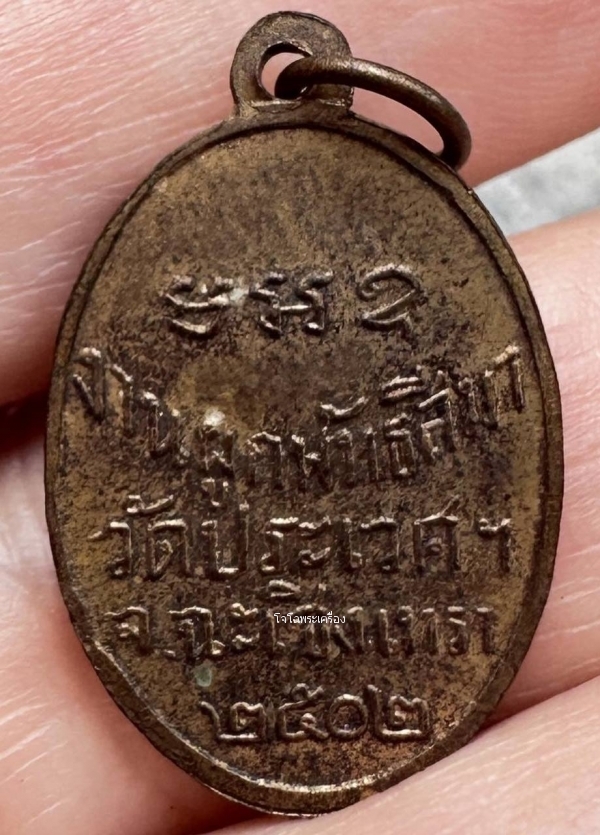 งานผูกพัทธสีมา
วัดประเวศฯ
จ.ฉะเชิงเทรา
๒๕๐๒
โจโฉพระเครื่อง